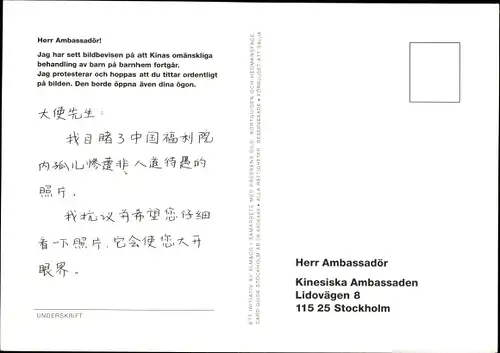 Herr Ambassadör!
Jag har sett bildbevisen på att Kinas omänskliga
behandling av barn på barnhem fortgår.
Jag protesterar och hoppas att du tittar ordentligt
på bilden. Den borde öppna även dina ögon.
大使先生:
我目睹了中国福利院
内孤儿惨遭非人道待遇的
照片.
我抗议并希望您仔细
看一下照片,它会使您大开
眼界.
UNDERSKRIFT
ETT INITIATIV AV ALMAGU I SAMARBETE MED PASSEENS BILD KORTGUIDEN OCH HEDMANSFACE
CARD GUIDE STOCKHOLM AB ALLA RÄTTIGHETER RESERVERADE • FÖRBJUDET ATT SÄLJA
Herr Ambassadör
Kinesiska Ambassaden
Lidovägen 8
115 25 Stockholm